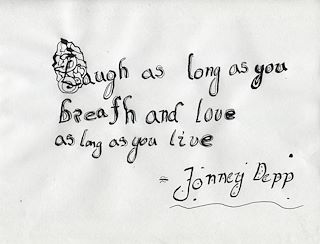 Laugh as long as you
breath and love
as long as you live
= Jonney Depp